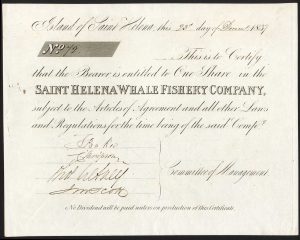 Island of Saint Helena, this 23d day of Decemr 1837
No. 72
This is to Certify
that the Bearer is entitled to One Share in the
SAINT HELENA WHALE FISHERY COMPANY,
subject to the Articles of Agreement and all other Laws
and Regulations for the time being of the said Compy
Committee of Management.
No Dividend will be paid unless on production of this Certificate.